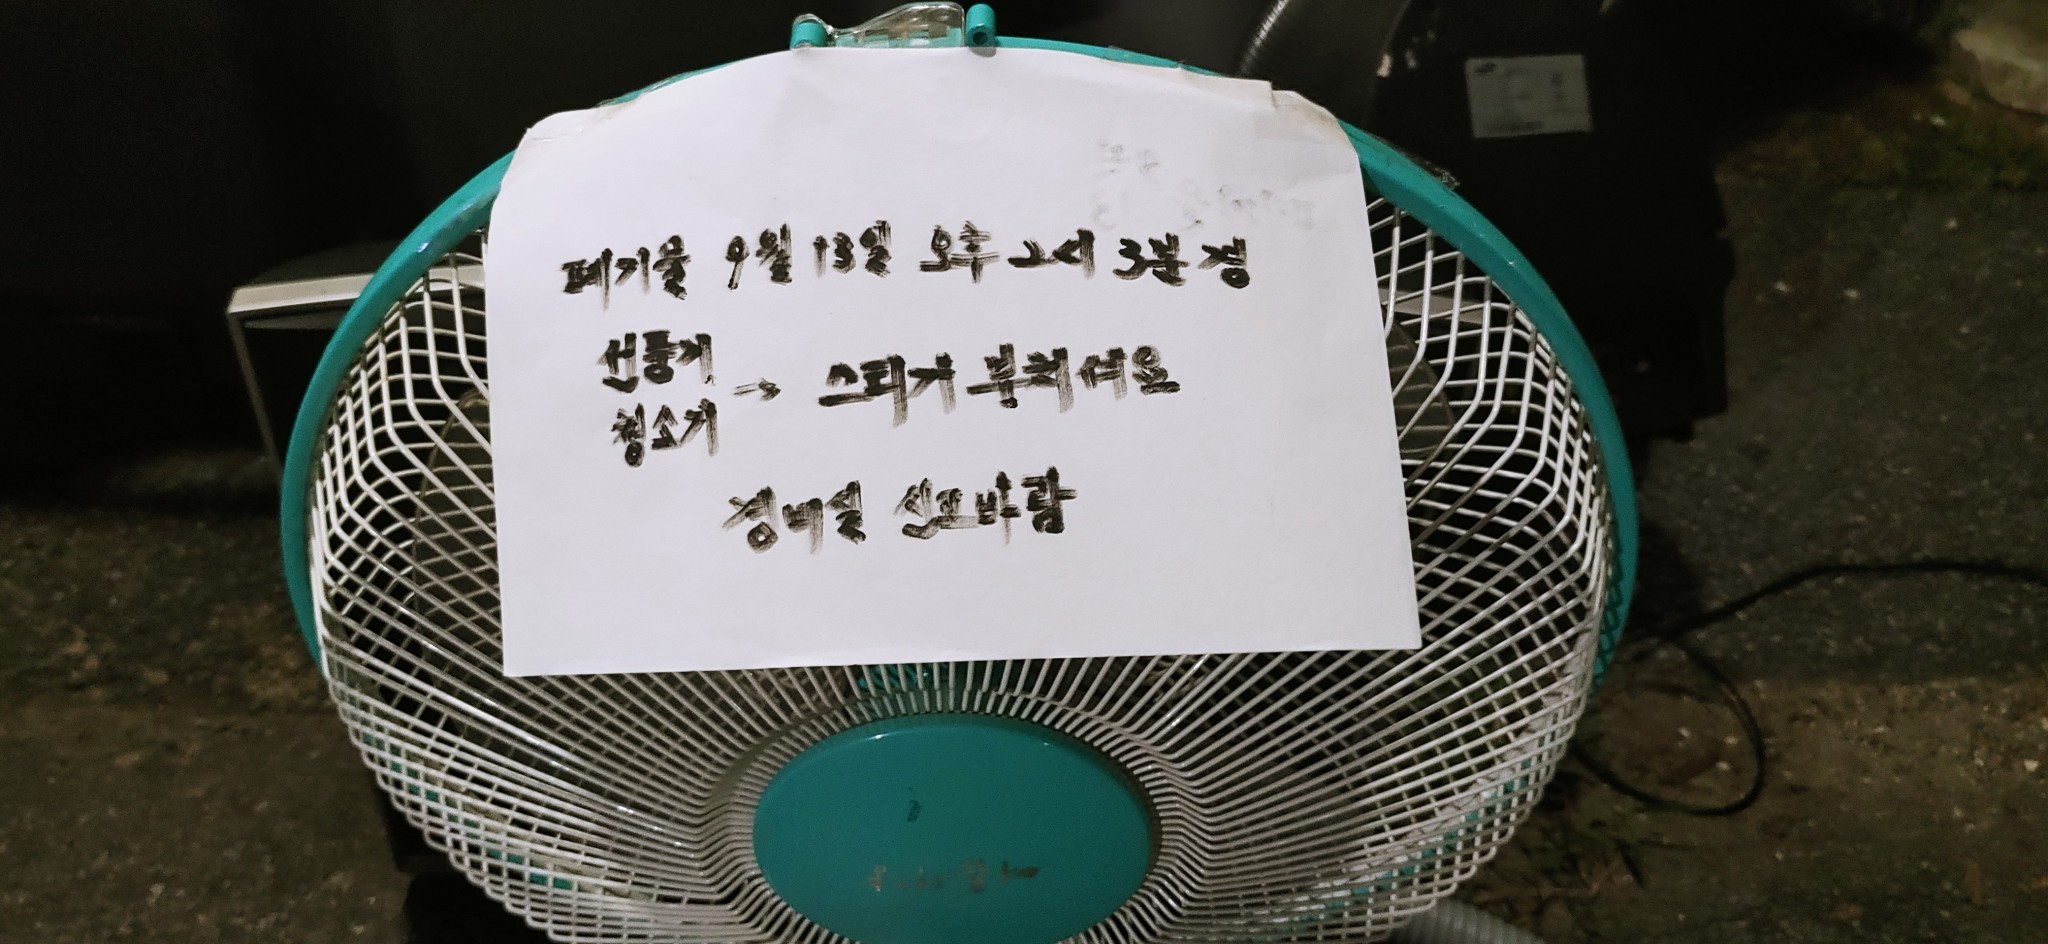 폐기물 9월 13일 오후 2시 3분 경
선풍기
청소기 → 스티커 붙히세요
경비실 신고바람